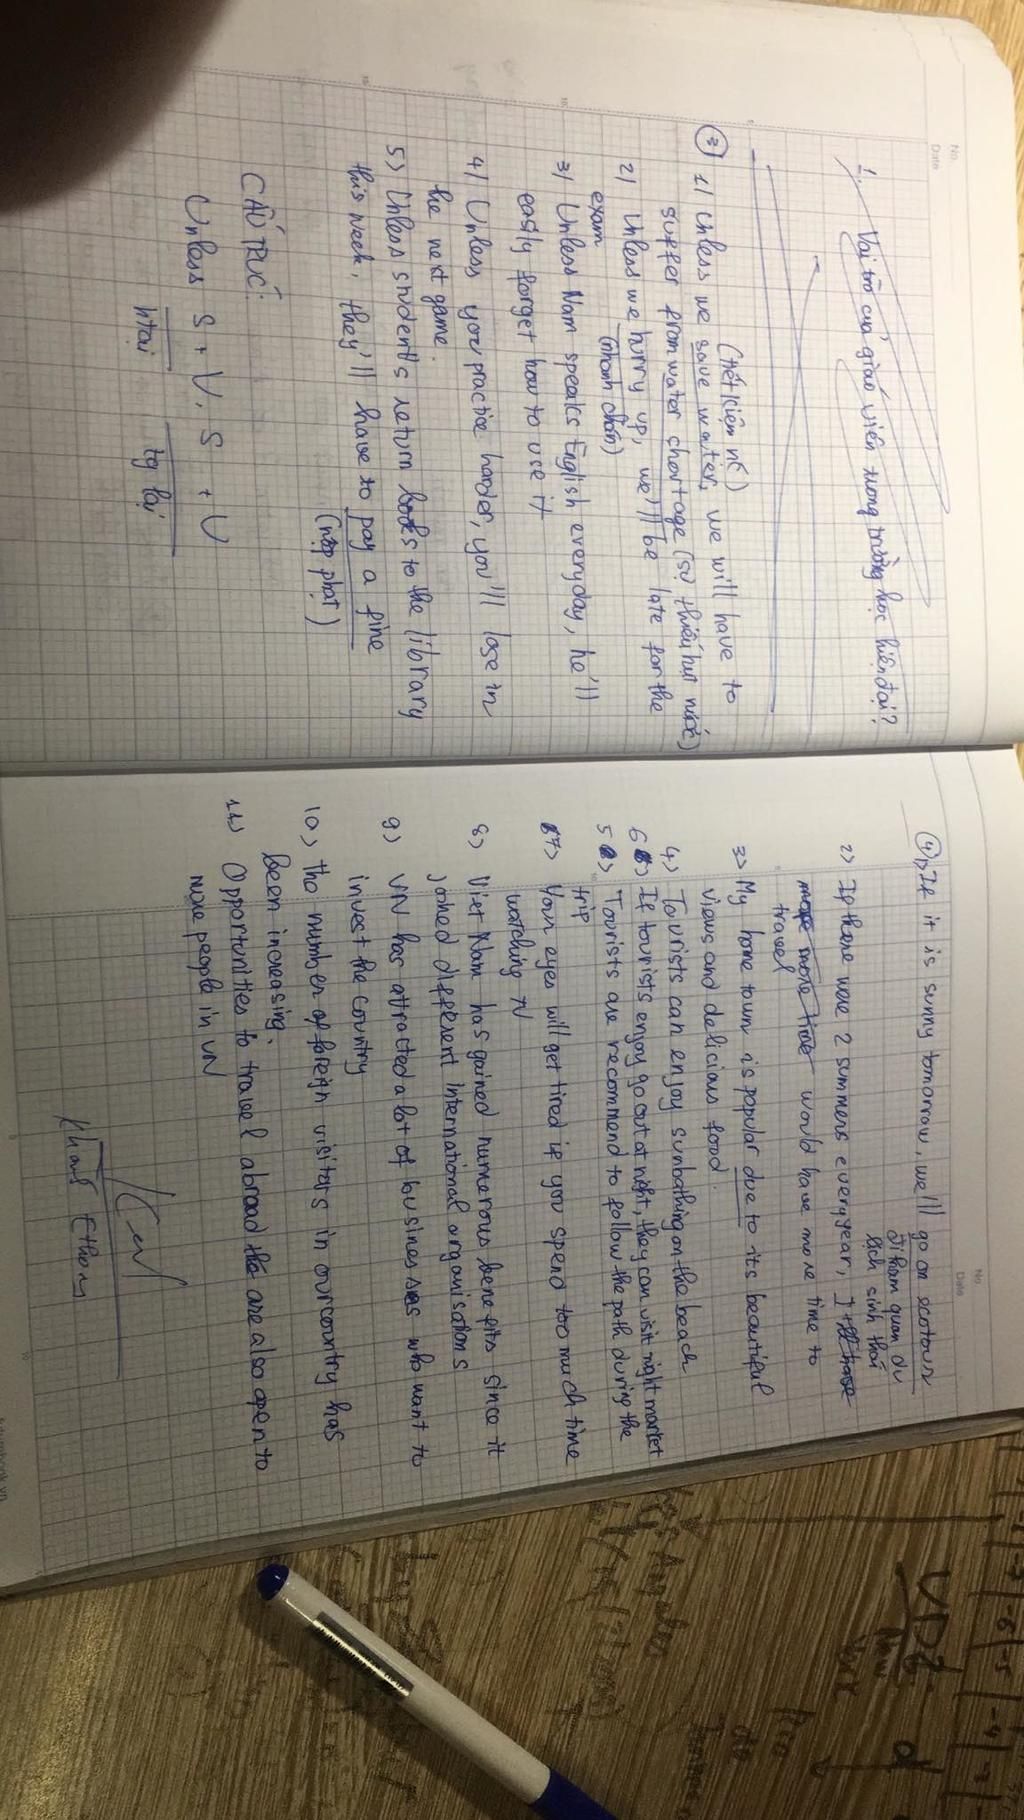 No.
Date
1. Vai trò của giáo viên trong trường học hiện đại?
(tiết kiệm nc)
3 1) Unless we save water, we will have to
suffer from water chortage (sự thiếu hụt nước)
2) Unless we hurry up, we'll be late for the
exam (nhanh chân)
3) Unless Nam speaks English everyday, he'll
easly forget how to use it
4) Unless you practice harder, you'll lose in
the next game.
5) Unless students return books to the library
this week, they'll have to pay a fine
(nộp phạt)
CẤU TRÚC:
Unless S + V, S + V
htại tg lai
No.
Date
4 1) If it is sunny tomorrow, we'll go on ecotour
đi thăm quan du
lịch sinh thái
2) If there were 2 summers every year, I
would have more time to
travel
3) My home town is popular due to its beautiful
views and delicious food.
4) Tourists can enjoy sunbathing on the beach
6) If tourists enjoy go out at night, they can visit night market
5) Tourists are recommend to follow the path during the
trip
7) Your eyes will get tired if you spend too much time
watching TV
8) Viet Nam has gained numerous benefits since it
joined different international organisations
9) VN has attracted a lot of businesses who want to
invest the country
10) the number of foreign visitors in our country has
been increasing.
11) Opportunities to travel abroad are also open to
more people in VN